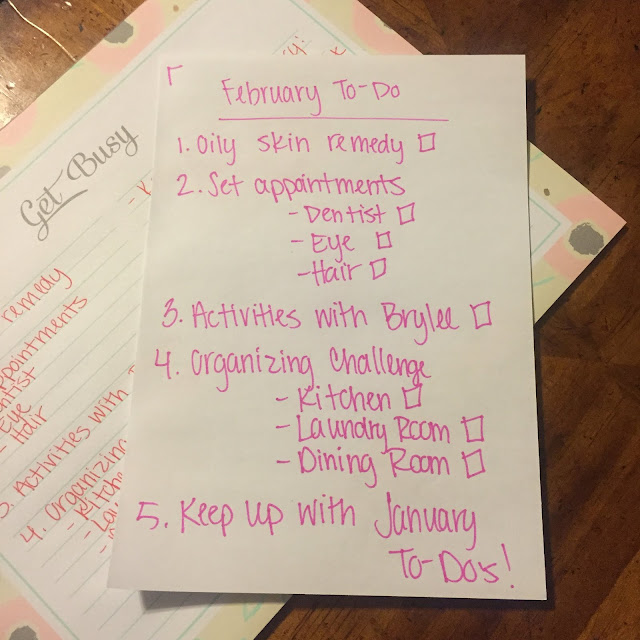 February To-Do
1. Oily skin remedy
2. Set appointments
- Dentist
- Eye
- Hair
3. Activities with Brylee
4. Organizing Challenge
- Kitchen
- Laundry Room
- Dining Room
5. Keep up with January
To-Do's!
Get Busy
remedy
- Eye
- Hair
3. Activities with
4. Organizing